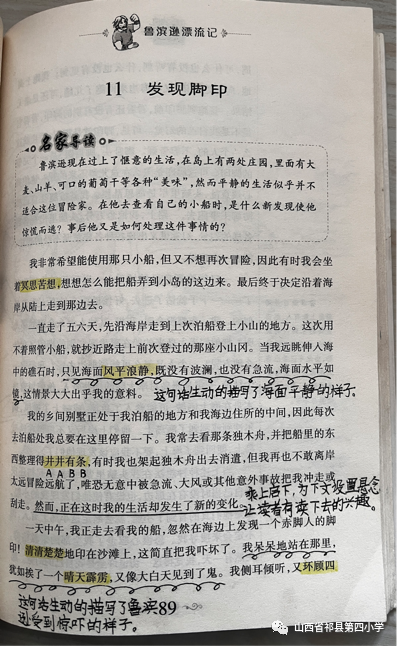 鲁滨逊漂流记
11 发现脚印
名家导读
鲁滨逊现在过上了惬意的生活，在岛上有两处庄园，里面有大
麦、山羊、可口的葡萄干等各种“美味”，然而平静的生活似乎并不
适合这位冒险家。在他去查看自己的小船时，是什么新发现使他
惊慌而逃？事后他又是如何处理这件事情的？
我非常希望能使用那只小船，但又不想再次冒险，因此有时我会坐
着冥思苦想，想想怎么能把船弄到小岛的这边来。最后终于决定沿着海
岸从陆上走到那边去。
一直走了五六天，先沿海岸走到上次泊船登上小山的地方。这次用
不着照管小船，就抄近路走上前次登过的那座小山冈。当我远眺伸入海
中的礁石时，只见海面风平浪静，既没有波澜，也没有急流，海面水平如
镜，这情景大大出乎我的意料。 这句话生动的描写了海面平静的样子。
我的乡间别墅正处于我泊船的地方和我海边住所的中间，因此每次
去泊船处我总要在这里停留一下。我常去看那条独木舟，并把船里的东
西整理得井井有条，有时我也架起独木舟出去消遣，但我再也不敢离岸
AABB
太远冒险远航了，唯恐无意中被急流、大风或其他意外事故把我冲走或
刮走。然而，正在这时我的生活却发生了新的变化。
承上启下，为下文设置悬念
让读者有读下去的兴趣。
一天中午，我正走去看我的船，忽然在海边上发现一个赤脚人的脚
印！清清楚楚地印在沙滩上，这简直把我吓坏了。我呆呆地站在那里，
犹如挨了一个晴天霹雳，又像大白天见到了鬼。我侧耳倾听，又环顾四
这句话生动的描写了鲁滨
逊受到惊吓的样子。
89
山西省祁县第四小学